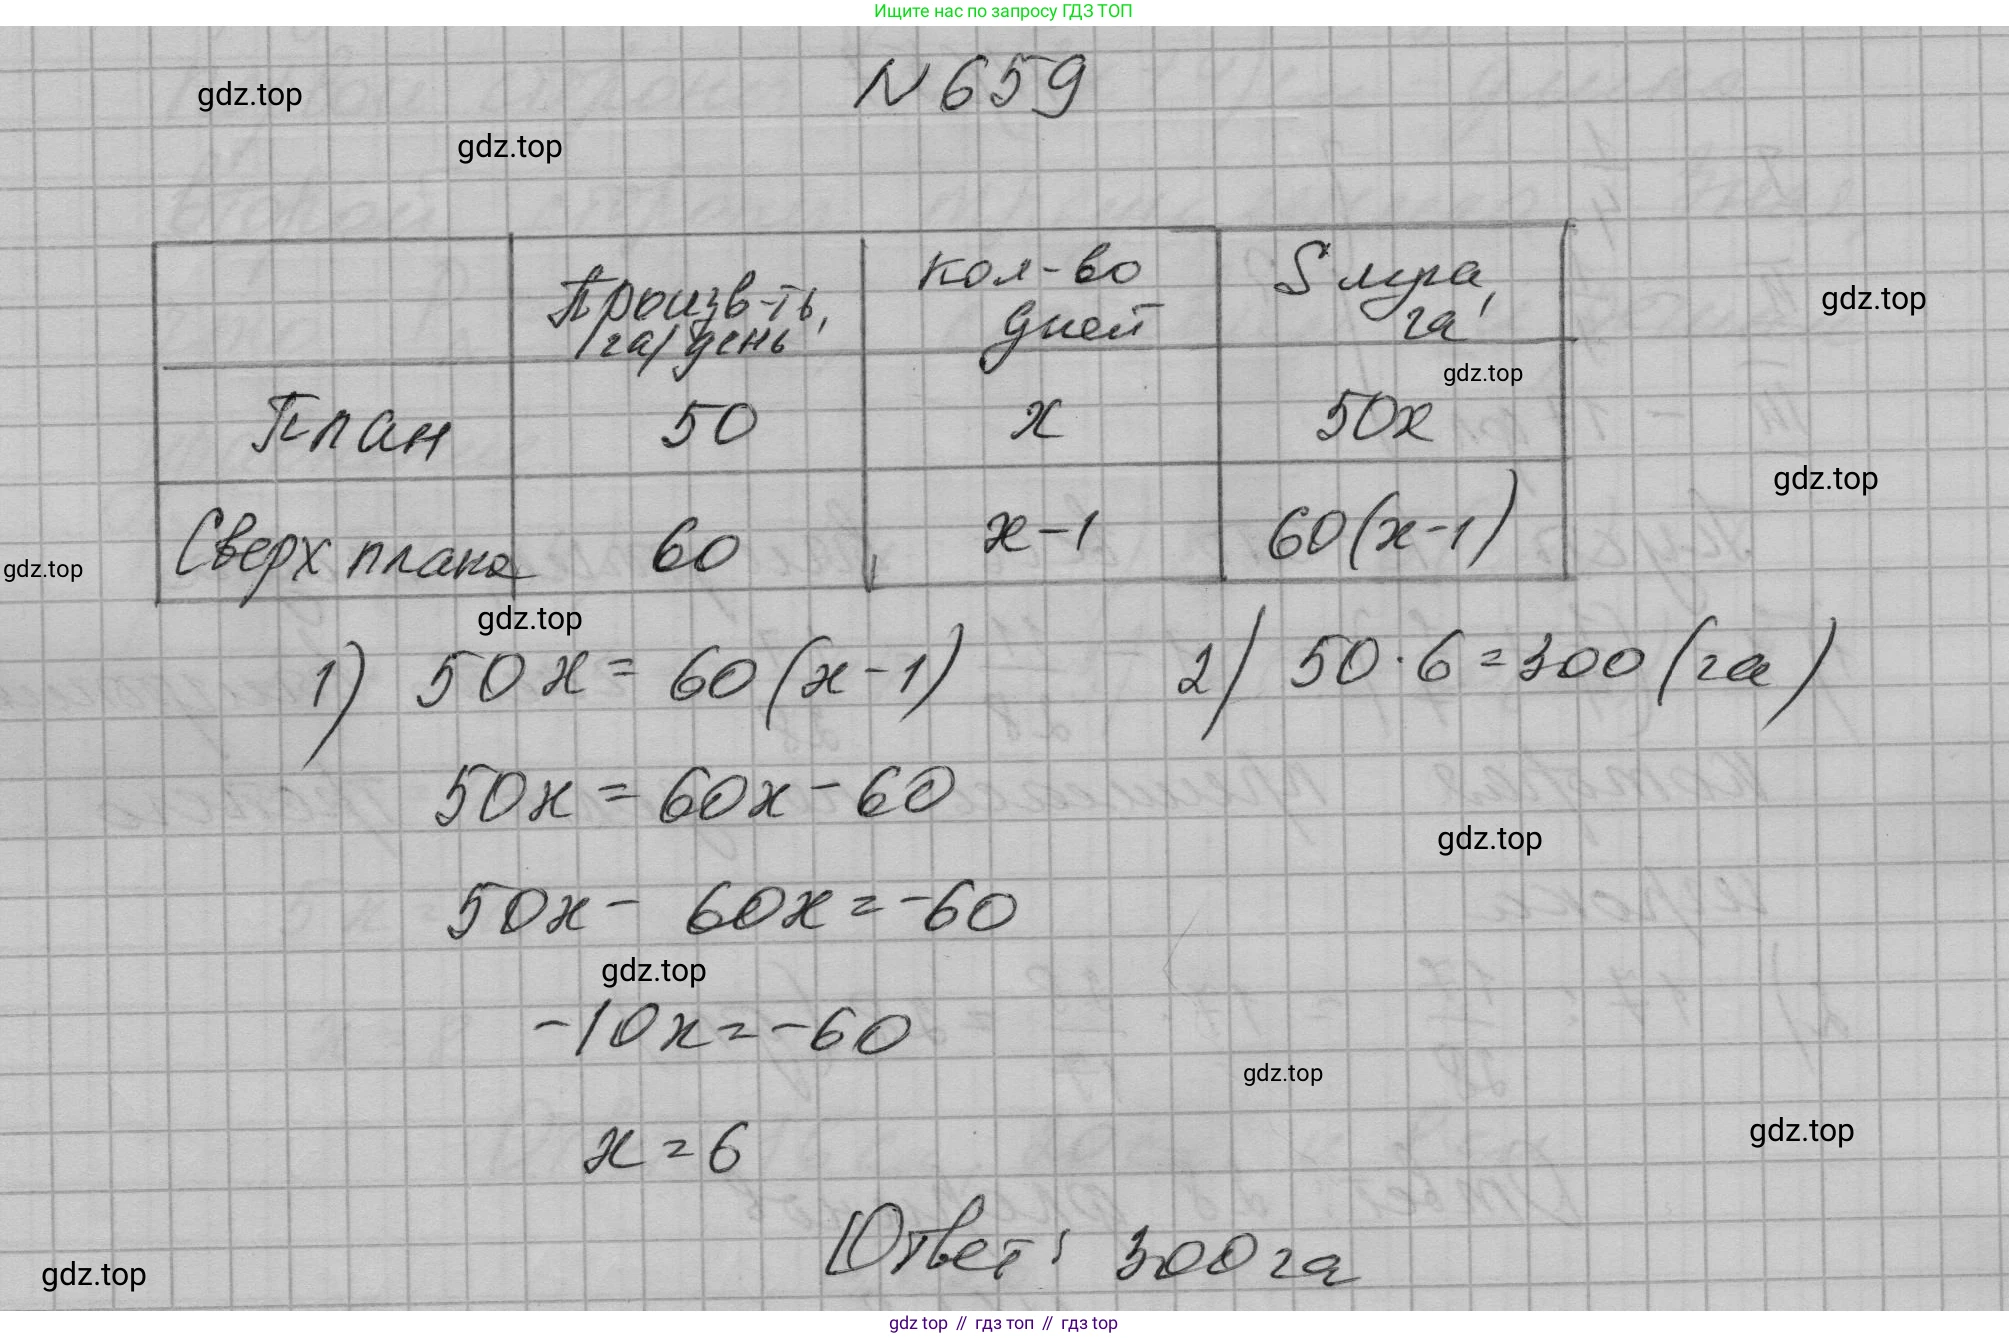 Ищите нас по запросу ГДЗ ТОП
N 659
gdz.top
gdz.top
Произв-ть, га/день
кол-во дней
S луга, га
gdz.top
gdz.top
План 50 x 50x
gdz.top
Сверх плана 60 x-1 60(x-1)
gdz.top
gdz.top
1) 50x = 60(x-1)
2) 50·6=300 (га)
50x = 60x - 60
gdz.top
50x - 60x = -60
gdz.top
-10x = -60
gdz.top
gdz.top
x = 6
Ответ: 300 га
gdz.top
gdz.top // гдз топ // гдз top